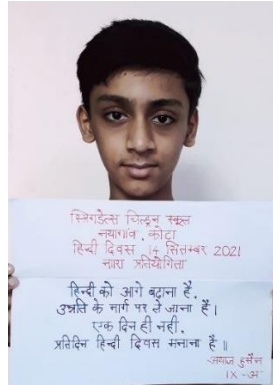 स्प्रिंगडेल्स चिल्ड्रन स्कूल
नयागांव, कोटा
हिन्दी दिवस 14 सितम्बर 2021
नारा प्रतियोगिता
हिन्दी को आगे बढ़ाना है,
उन्नति के मार्ग पर ले जाना है।
एक दिन ही नहीं,
प्रतिदिन हिन्दी दिवस मनाना है॥
-अयाज़ हुसैन
IX-अ